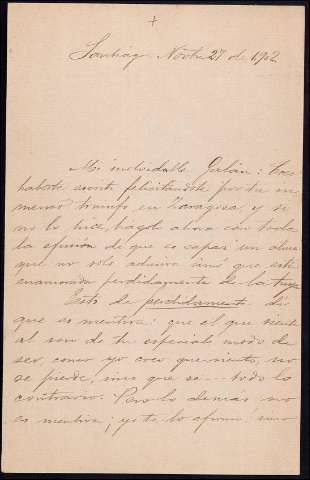 +
Santiago Novbre 27 de 1902
Mi inolvidable Galán: Creo
haberte escrito felicitándote por tu in
menso triunfo en Zaragoza, y si
no lo hice, hágolo ahora con toda
la efusión de que es capaz un alma
que no solo admira sino que está
enamorada perdidamente de la tuya
Esto de perdidamente dí
que es mentira: que el que siente
al son de tu especial modo de
ser, como yo creo que siento, no
se pierde, sino que se--- todo lo
contrario. Pero lo demás no
es mentira; yo te lo afirmo! sino